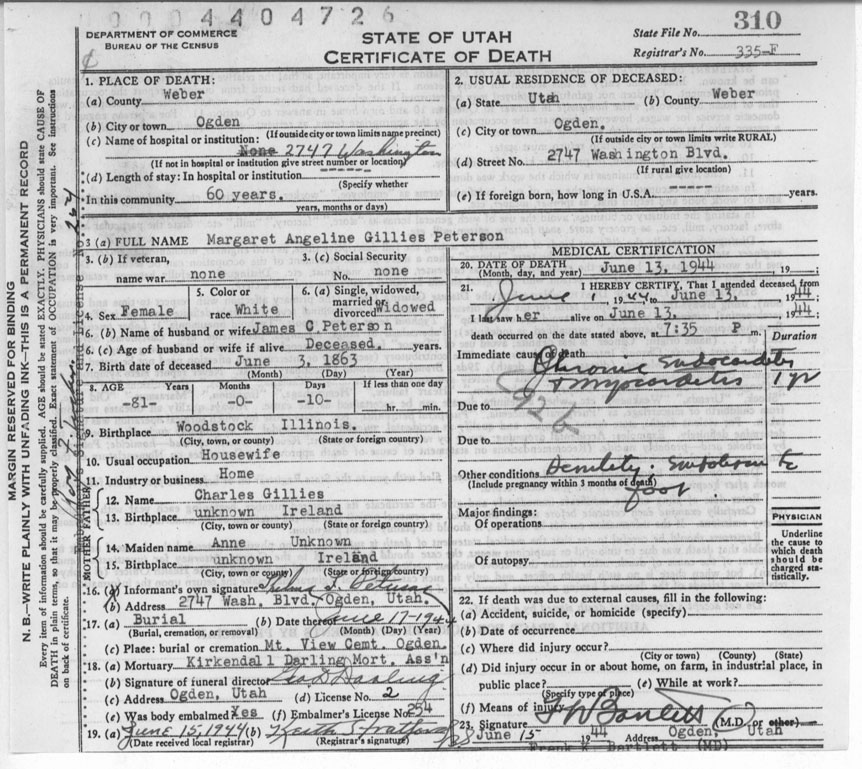 0004404726
310
DEPARTMENT OF COMMERCE
BUREAU OF THE CENSUS
STATE OF UTAH
CERTIFICATE OF DEATH
State File No.
Registrar's No. 335-F
MARGIN RESERVED FOR BINDING
N. B.—WRITE PLAINLY WITH UNFADING INK—THIS IS A PERMANENT RECORD
Every item of information should be carefully supplied. AGE should be stated EXACTLY. PHYSICIANS should state CAUSE OF
DEATH in plain terms, so that it may be properly classified. Exact statement of OCCUPATION is very important. See instructions
on back of certificate.
1. PLACE OF DEATH:
(a) County Weber
(b) City or town Ogden
(If outside city or town limits name precinct)
(c) Name of hospital or institution:
None 2747 Washington
(If not in hospital or institution give street number or location)
(d) Length of stay: In hospital or institution -----
(Specify whether
In this community 60 years.
years, months or days)
2. USUAL RESIDENCE OF DECEASED:
(a) State Utah (b) County Weber
(c) City or town Ogden.
(If outside city or town limits write RURAL)
(d) Street No. 2747 Washington Blvd.
(If rural give location)
(e) If foreign born, how long in U.S.A. ----- years.
3 (a) FULL NAME Margaret Angeline Gillies Peterson
3. (b) If veteran,
name war none
3. (c) Social Security
No. none
4. Sex Female
5. Color or
race White
6. (a) Single, widowed,
married or
divorced Widowed
6. (b) Name of husband or wife James C Peterson
6. (c) Age of husband or wife if alive Deceased. years.
7. Birth date of deceased June 3, 1863
(Month) (Day) (Year)
8. AGE Years Months Days If less than one day
-81- -0- -10- hr. min.
9. Birthplace Woodstock Illinois.
(City, town, or county) (State or foreign country)
10. Usual occupation Housewife
11. Industry or business Home
FATHER
12. Name Charles Gillies
13. Birthplace unknown Ireland
(City, town or county) (State or foreign country)
MOTHER
14. Maiden name Anne Unknown
15. Birthplace unknown Ireland
(City, town or county) (State or foreign country)
16. (a) Informant's own signature
(b) Address 2747 Wash. Blvd. Ogden, Utah.
17. (a) Burial (b) Date thereof June 17-1944
(Burial, cremation, or removal) (Month) (Day) (Year)
(c) Place: burial or cremation Mt. View Cemt. Ogden.
18. (a) Mortuary Kirkendall Darling Mort. Ass'n
(b) Signature of funeral director Geo D Darling
(c) Address Ogden, Utah (d) License No. 2
(e) Was body embalmed Yes (f) Embalmer's License No. 254
19. (a) June 15, 1944 (b) Keith Stratford
(Date received local registrar) (Registrar's signature)
MEDICAL CERTIFICATION
20. DATE OF DEATH
(Month, day, and year) June 13, 1944, 19 ;
21. I HEREBY CERTIFY, That I attended deceased from
June 1, 1944 to June 13, 1944
I last saw her alive on June 13, 1944;
death occurred on the date stated above, at 7:35 P m.
Duration
Immediate cause of death
Chronic Endocarditis
+ myocarditis 1 yr
92b
Due to
Due to
Other conditions
(Include pregnancy within 3 months of death)
foot
Major findings:
Of operations
Of autopsy
PHYSICIAN
Underline
the cause to
which death
should be
charged sta-
tistically.
22. If death was due to external causes, fill in the following:
(a) Accident, suicide, or homicide (specify)
(b) Date of occurrence
(c) Where did injury occur?
(City or town) (County) (State)
(d) Did injury occur in or about home, on farm, in industrial place, in
public place? (e) While at work?
(Specify type of place)
(f) Means of injury
23. Signature F W Bartlett (M.D. or other)
June 15 1944 Address Ogden, Utah
Frank K Bartlett (MD)